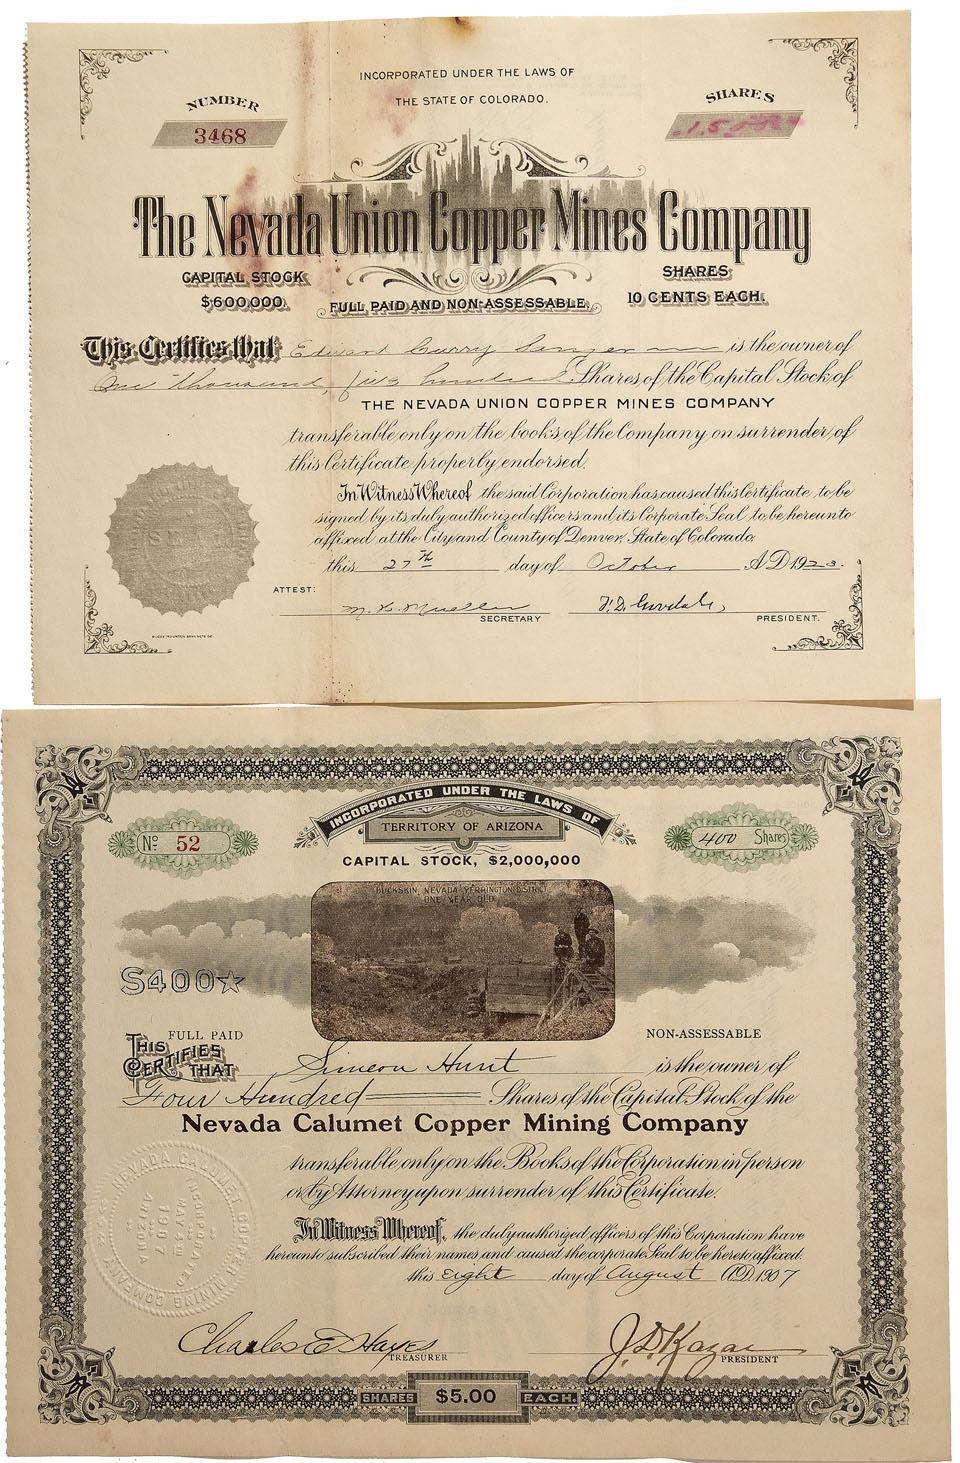 INCORPORATED UNDER THE LAWS OF
THE STATE OF COLORADO.
NUMBER
3468
SHARES
The Nevada Union Copper Mines Company
CAPITAL STOCK
$600,000.
FULL PAID AND NON-ASSESSABLE.
SHARES
10 CENTS EACH.
This Certifies that Edward Curry Sanger is the owner of
One thousand, five hundred Shares of the Capital Stock of
THE NEVADA UNION COPPER MINES COMPANY
transferable only on the books of the Company on surrender of
this Certificate properly endorsed.
In Witness Whereof the said Corporation has caused this Certificate to be
signed by its duly authorized officers and its Corporate Seal to be hereunto
affixed at the City and County of Denver, State of Colorado.
this 27th day of October A.D. 1923.
ATTEST:
SECRETARY
PRESIDENT.
ROCKY MOUNTAIN BANK NOTE CO.
INCORPORATED UNDER THE LAWS OF
TERRITORY OF ARIZONA
No 52
400 Shares
CAPITAL STOCK, $2,000,000
BUCKSKIN, NEVADA YERRINGTON DISTRICT
ONE YEAR OLD
$400☆
FULL PAID
NON-ASSESSABLE
THIS CERTIFIES THAT Simeon Hunt is the owner of
Four Hundred Shares of the Capital Stock of the
Nevada Calumet Copper Mining Company
transferable only on the Books of the Corporation in person
or by Attorney upon surrender of this Certificate.
In Witness Whereof, the duly authorized officers of this Corporation have
hereunto subscribed their names and caused the corporate Seal to be hereto affixed.
this eight day of August A.D. 1907
NEVADA CALUMET COPPER MINING COMPANY
INCORPORATED
MAY
1907
ARIZONA
Charles E Hayes
TREASURER
PRESIDENT
SHARES $5.00 EACH.